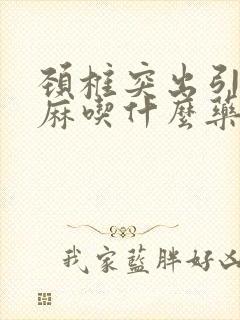 頸椎突出引
麻喫什麼藥
我家藍胖好凶